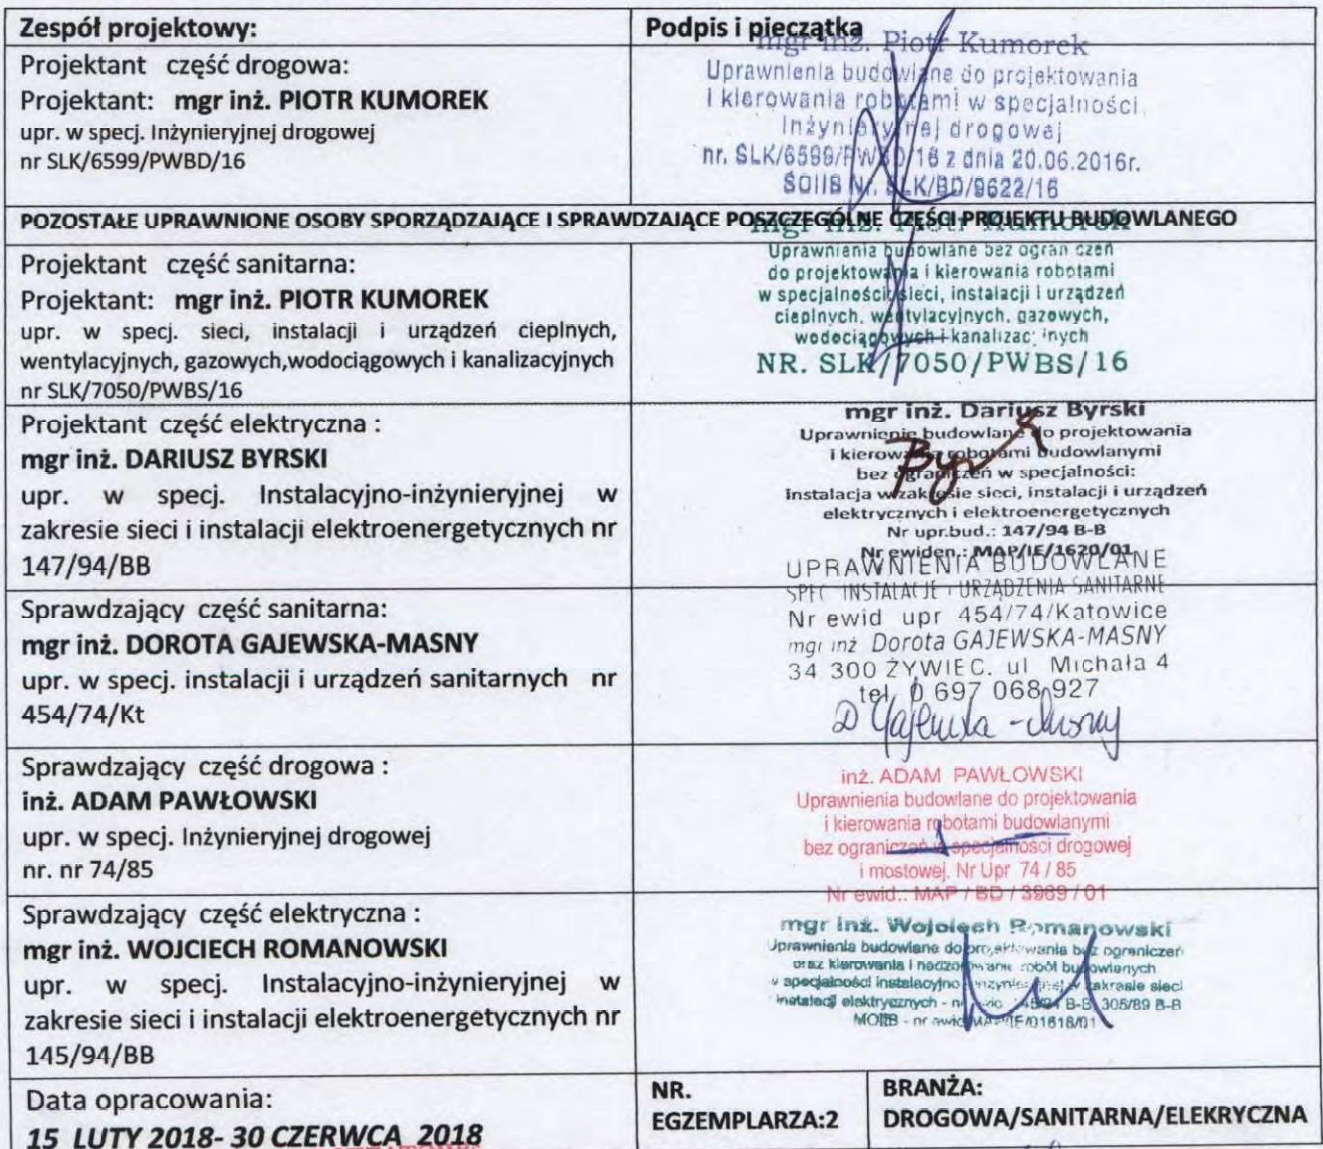 Zespół projektowy:
Podpis i pieczątka
Projektant część drogowa:
Projektant: mgr inż. PIOTR KUMOREK
upr. w specj. Inżynieryjnej drogowej
nr SLK/6599/PWBD/16
mgr inż. Piotr Kumorek
Uprawnienia budowlane do projektowania
i kierowania robotami w specjalności
Inżynieryjnej drogowej
nr. SLK/6599/PWBD/16 z dnia 20.06.2016r.
ŚOIIB Nr. SLK/BD/9622/16
POZOSTAŁE UPRAWNIONE OSOBY SPORZĄDZAJĄCE I SPRAWDZAJĄCE POSZCZEGÓLNE CZĘŚCI PROJEKTU BUDOWLANEGO
Projektant część sanitarna:
Projektant: mgr inż. PIOTR KUMOREK
upr. w specj. sieci, instalacji i urządzeń cieplnych,
wentylacyjnych, gazowych,wodociągowych i kanalizacyjnych
nr SLK/7050/PWBS/16
mgr inż. Piotr Kumorek
Uprawnienia budowlane bez ogran czeń
do projektowania i kierowania robotami
w specjalności sieci, instalacji i urządzeń
cieplnych, wentylacyjnych, gazowych,
wodociągowych i kanalizac inych
NR. SLK/7050/PWBS/16
Projektant część elektryczna :
mgr inż. DARIUSZ BYRSKI
upr. w specj. Instalacyjno-inżynieryjnej w
zakresie sieci i instalacji elektroenergetycznych nr
147/94/BB
mgr inż. Dariusz Byrski
Uprawnienie budowlane do projektowania
i kierowania robotami budowlanymi
bez ograniczeń w specjalności:
instalacja w zakresie sieci, instalacji i urządzeń
elektrycznych i elektroenergetycznych
Nr upr.bud.: 147/94 B-B
Nr ewiden.: MAP/IE/1620/01
Sprawdzający część sanitarna:
mgr inż. DOROTA GAJEWSKA-MASNY
upr. w specj. instalacji i urządzeń sanitarnych nr
454/74/Kt
UPRAWNIENIA BUDOWLANE
SPEC INSTALACJE I URZĄDZENIA SANITARNE
Nr ewid upr 454/74/Katowice
mgr inż Dorota GAJEWSKA-MASNY
34 300 ŻYWIEC. ul Michała 4
tel. 0 697 068 927
D Gajewska-Masny
Sprawdzający część drogowa :
inż. ADAM PAWŁOWSKI
upr. w specj. Inżynieryjnej drogowej
nr. nr 74/85
inż. ADAM PAWŁOWSKI
Uprawnienia budowlane do projektowania
i kierowania robotami budowlanymi
bez ograniczeń w specjalności drogowej
i mostowej. Nr Upr 74 / 85
Nr ewid.: MAP / BD / 3969 / 01
Sprawdzający część elektryczna :
mgr inż. WOJCIECH ROMANOWSKI
upr. w specj. Instalacyjno-inżynieryjnej w
zakresie sieci i instalacji elektroenergetycznych nr
145/94/BB
mgr inż. Wojciech Romanowski
Uprawnienia budowlane do projektowania bez ograniczeń
oraz kierowania i nadzorowania robót budowlanych
w specjalności instalacyjno inżynieryjnej w zakresie sieci
instalacji elektrycznych - 145/94 B-B 305/89 B-B
MOIIB - nr ewid MAP/IE/01618/01
Data opracowania:
15 LUTY 2018- 30 CZERWCA 2018
NR.
EGZEMPLARZA:2
BRANŻA:
DROGOWA/SANITARNA/ELEKRYCZNA